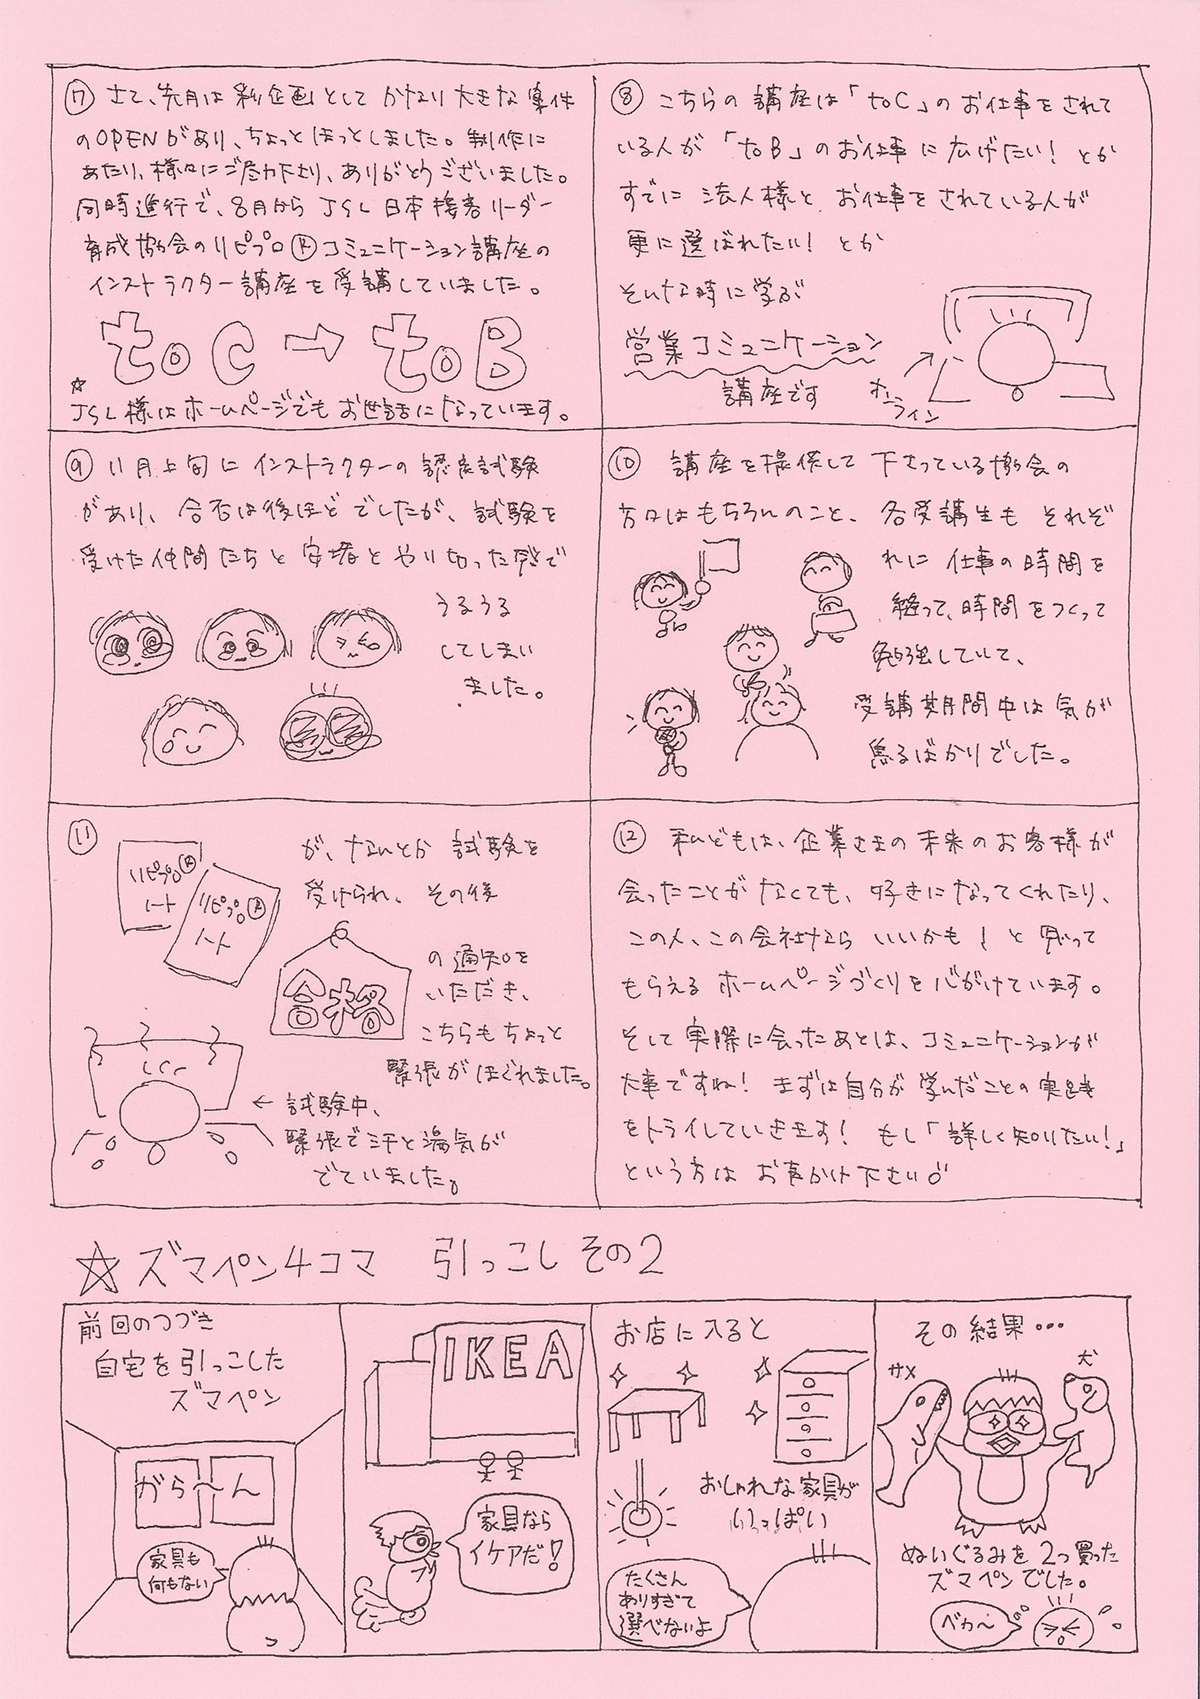 ⑦ さて、先月は新企画としてかなり大きな案件
のOPENがあり、ちょっとほっとしました。制作に
あたり、様々にご尽力下さり、ありがとうございました。
同時進行で、8月から JSL 日本接客リーダー
育成協会のリピプロ®コミュニケーション講座の
インストラクター講座を受講していました。
toC → toB
☆
JSL様はホームページでもお世話になっています。
⑧ こちらの講座は「toC」のお仕事をされて
いる人が「toB」のお仕事に広げたい! とか
すでに法人様と お仕事をされている人が
更に選ばれたい! とか
そんな時に学ぶ
営業コミュニケーション
講座です
オンライン
⑨ 11月上旬にインストラクターの認定試験
があり、合否は後ほどでしたが、試験を
受けた仲間たちと安堵とやり切った感で
うるうる
してしまい
ました。
⑩ 講座を提供して下さっている協会の
方々はもちろんのこと、各受講生もそれぞ
れに仕事の時間を
縫って、時間をつくって
勉強していて、
受講期間中は気が
焦るばかりでした。
⑪
リピプロ®
ノート
リピプロ®
ノート
が、なんとか試験を
受けられ、その後
合格
の通知を
いただき、
こちらもちょっと
緊張がほぐれました。
← 試験中、
緊張で汗と湯気が
でていました。
⑫ 私どもは、企業さまの未来のお客様が
会ったことがなくても、好きになってくれたり、
この人、この会社なら いいかも! と思って
もらえるホームページづくりを心がけています。
そして実際に会ったあとは、コミュニケーションが
大事ですね! まずは自分が学んだことの実践
をトライしていきます! もし「詳しく知りたい!」
という方はお声かけ下さい
☆ズマペン4コマ 引っこし その2
前回のつづき
自宅を引っこした
ズマペン
がら〜ん
家具も
何もない
IKEA
家具なら
イケアだ!
お店に入ると
おしゃれな家具が
いっぱい
たくさん
ありすぎて
選べないよ
その結果…
サメ
犬
ぬいぐるみを2つ買った
ズマペンでした。
ベカ〜